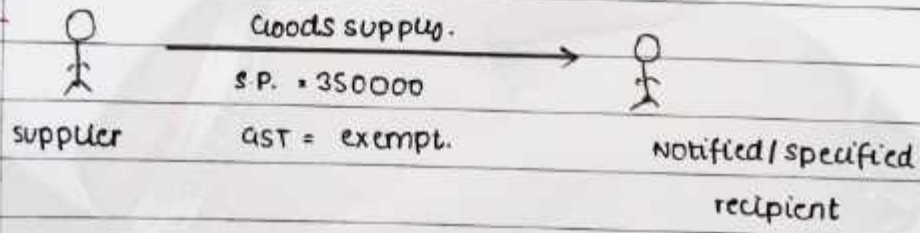 Goods supply.
S.P. = 350000
supplier
GST = exempt.
Notified/specified
recipient